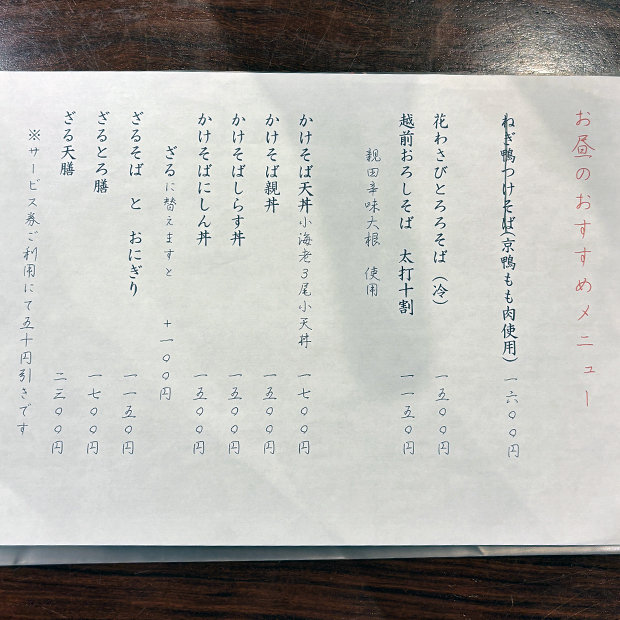 お昼のおすすめメニュー
ねぎ鴨つけそば(京鴨もも肉使用) 一六〇〇円
花わさびとろろそば(冷) 一五〇〇円
越前おろしそば 太打十割 一一五〇円
親田辛味大根 使用
かけそば天丼小海老3尾小天丼 一七〇〇円
かけそば親丼 一五〇〇円
かけそばしらす丼 一五〇〇円
かけそばにしん丼 一五〇〇円
ざるに替えますと +一〇〇円
ざるそば と おにぎり 一一五〇円
ざるとろ膳 一七〇〇円
ざる天膳 二三〇〇円
※サービス券ご利用にて五十円引きです